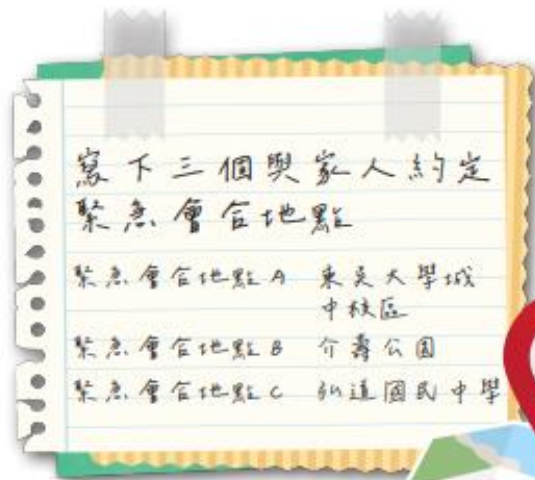 寫下三個與家人約定
緊急會合地點
緊急會合地點A 東吳大學城
中校區
緊急會合地點B 介壽公園
緊急會合地點C 弘道國民中學